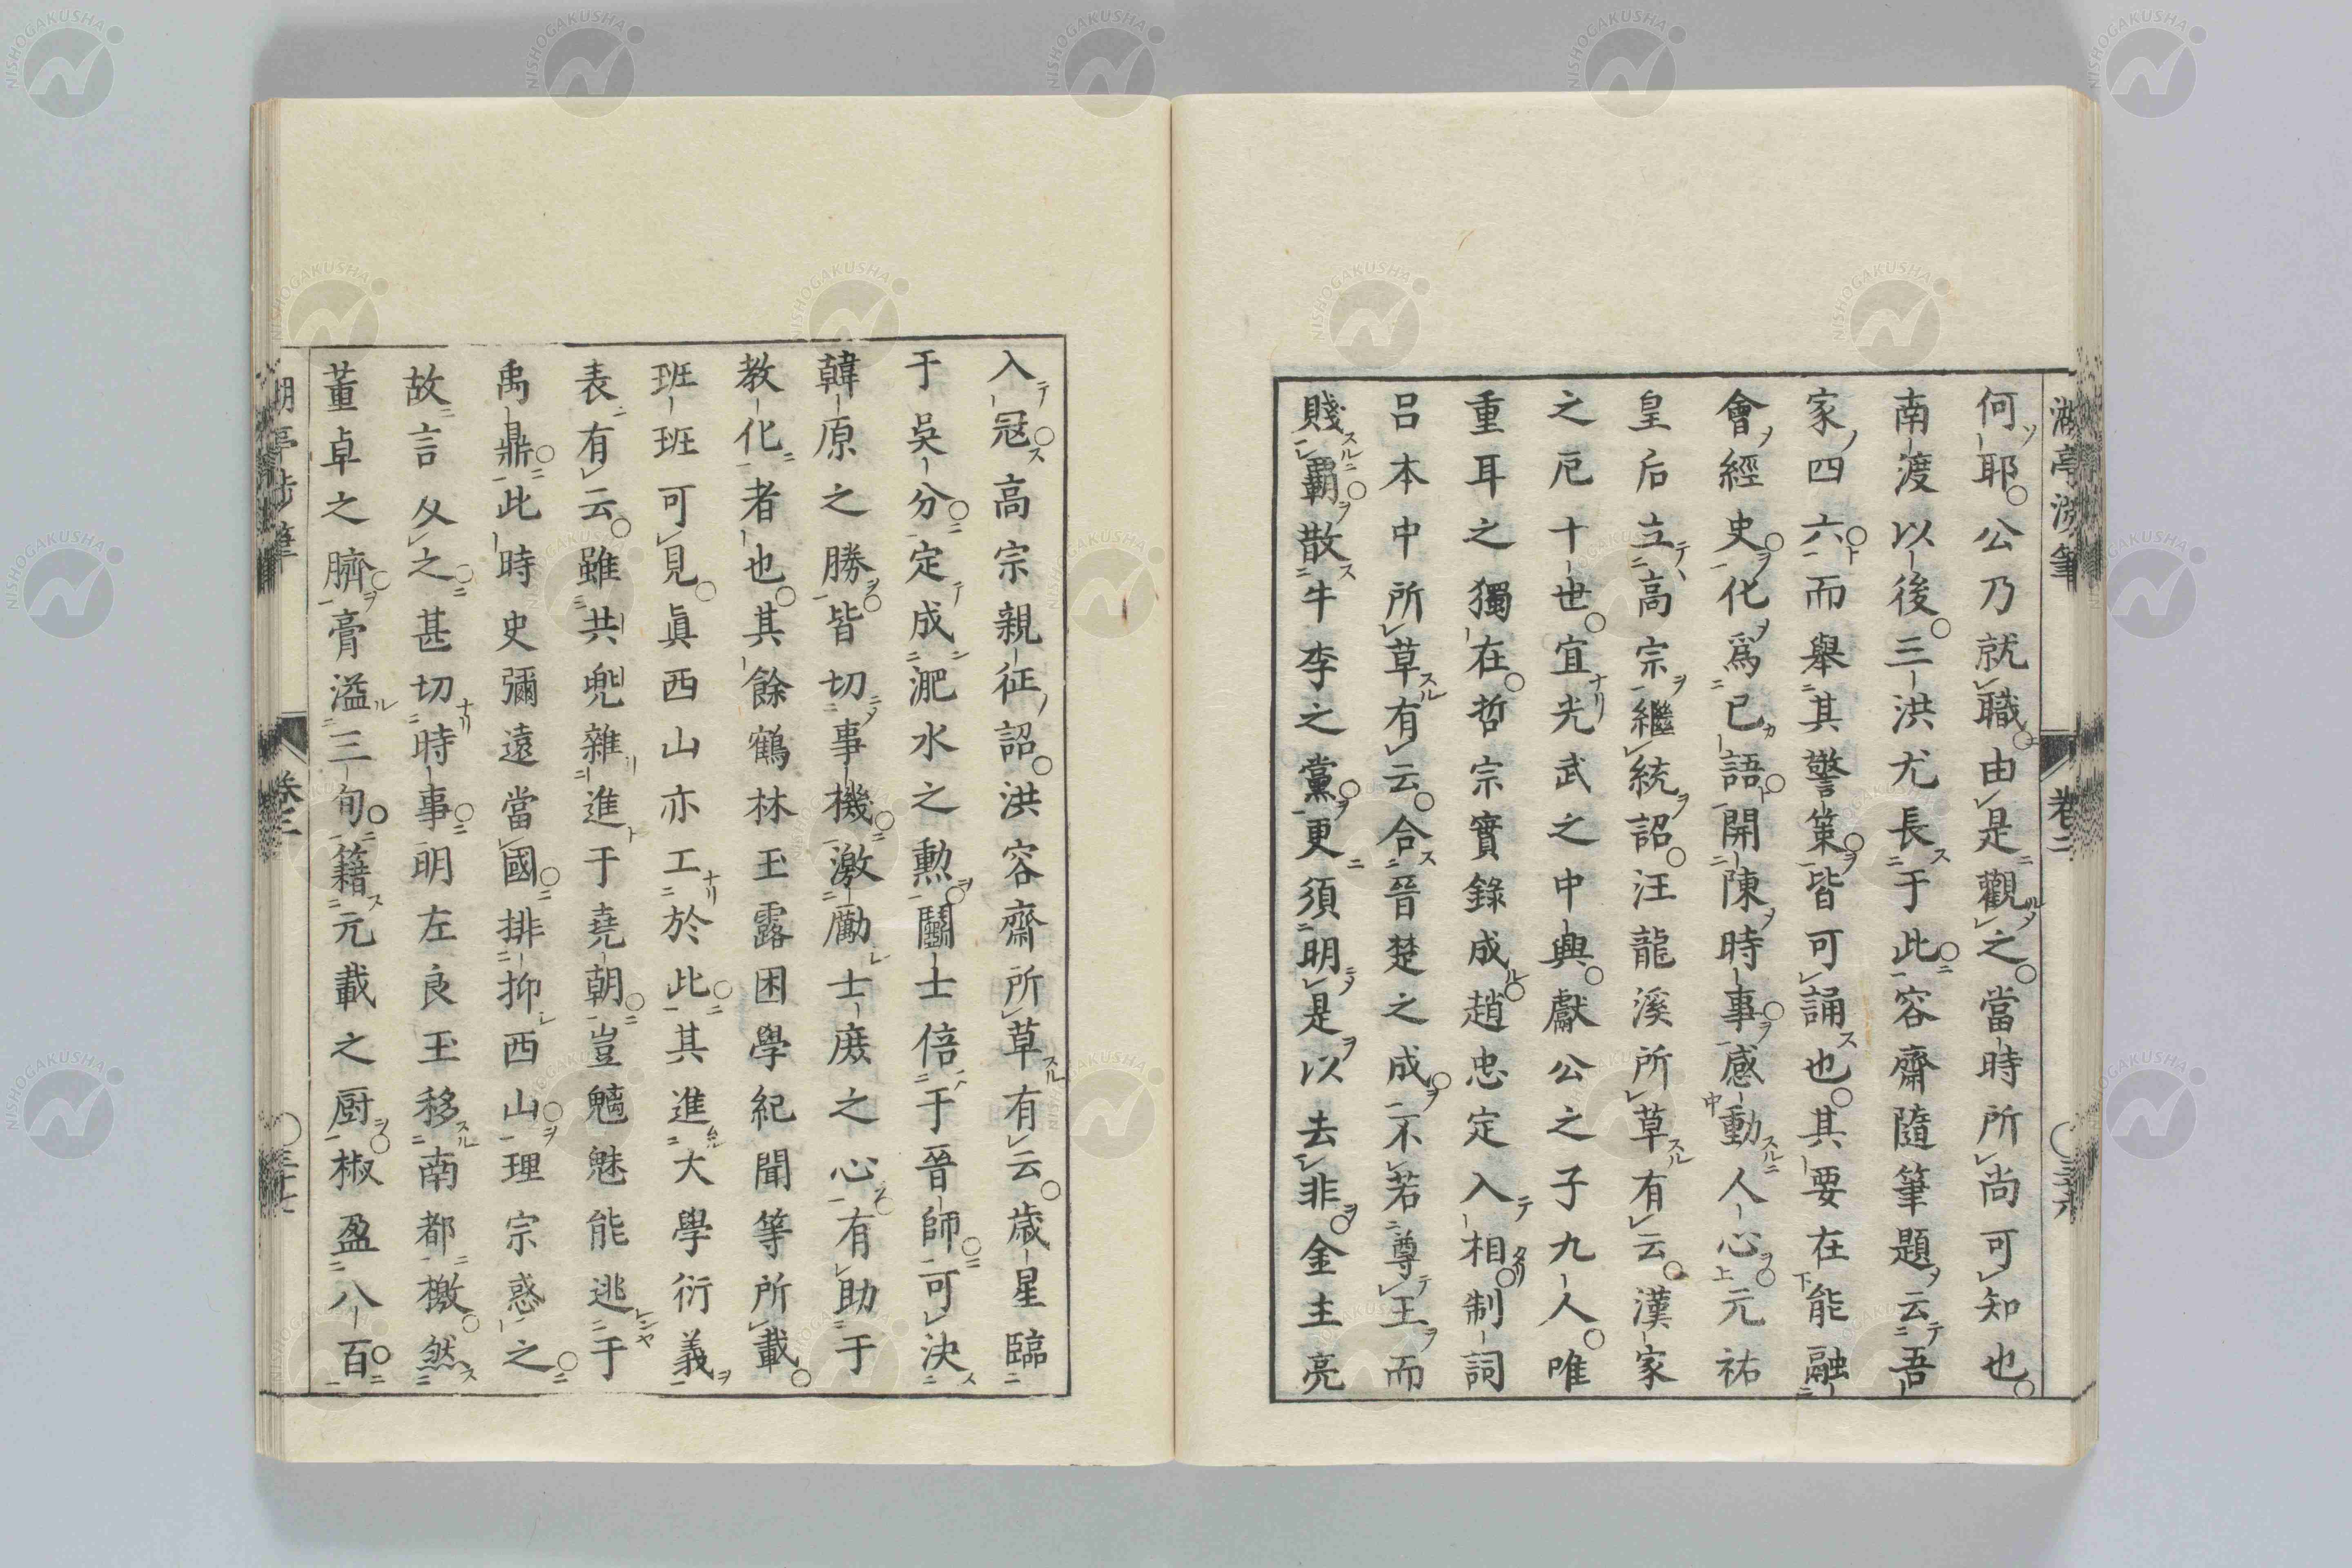 何耶公乃就職由是觀之當時所尚可知也
南渡以後三洪尤長于此容齋隨筆題云吾
家四六而舉其警策皆可誦也其要在能融
會經史化爲已語開陳時事感動人心元祐
皇后立高宗繼統詔汪龍溪所草有云漢家
之厄十世宜光武之中興獻公之子九人唯
重耳之獨在哲宗實錄成趙忠定入相制詞
呂本中所草有云合晉楚之成不若尊王而
賤霸散牛李之黨更須明是以去非金主亮
入冦高宗親征詔洪容齋所草有云歲星臨
于吳分定成淝水之勲鬭士倍于晉師可決
韓原之勝皆切事機激勵士庶之心有助于
教化者也其餘鶴林玉露困學紀聞等所載
班班可見眞西山亦工於此其進大學衍義
表有云雖共兜雜進于堯朝豈魑魅能逃于
禹鼎此時史彌遠當國排抑西山理宗惑之
故言及之甚切時事明左良玉移南都檄然
董卓之臍膏溢三旬籍元載之厨椒盈八百
卷三
NISHOGAKUSHA